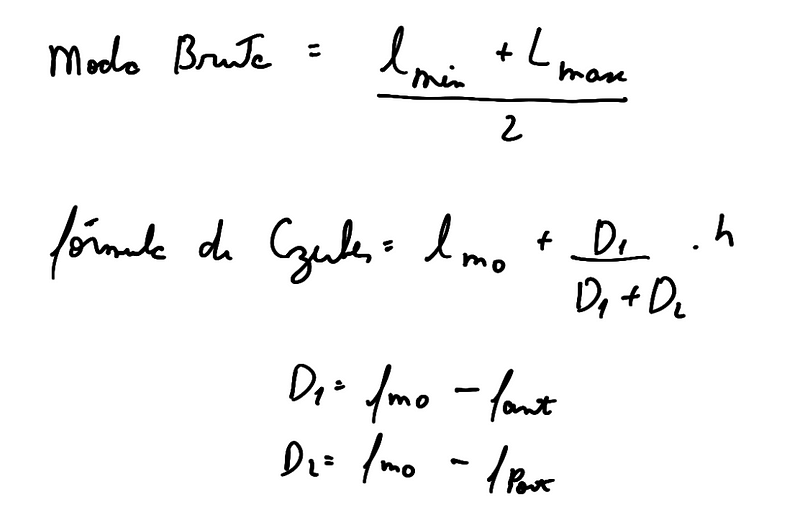 Moda Bruta = (l_min + L_max) / 2
fórmula de Czuber = l_mo + D_1 / (D_1 + D_2) . h
D_1 = f_mo - f_ant
D_2 = f_mo - f_post